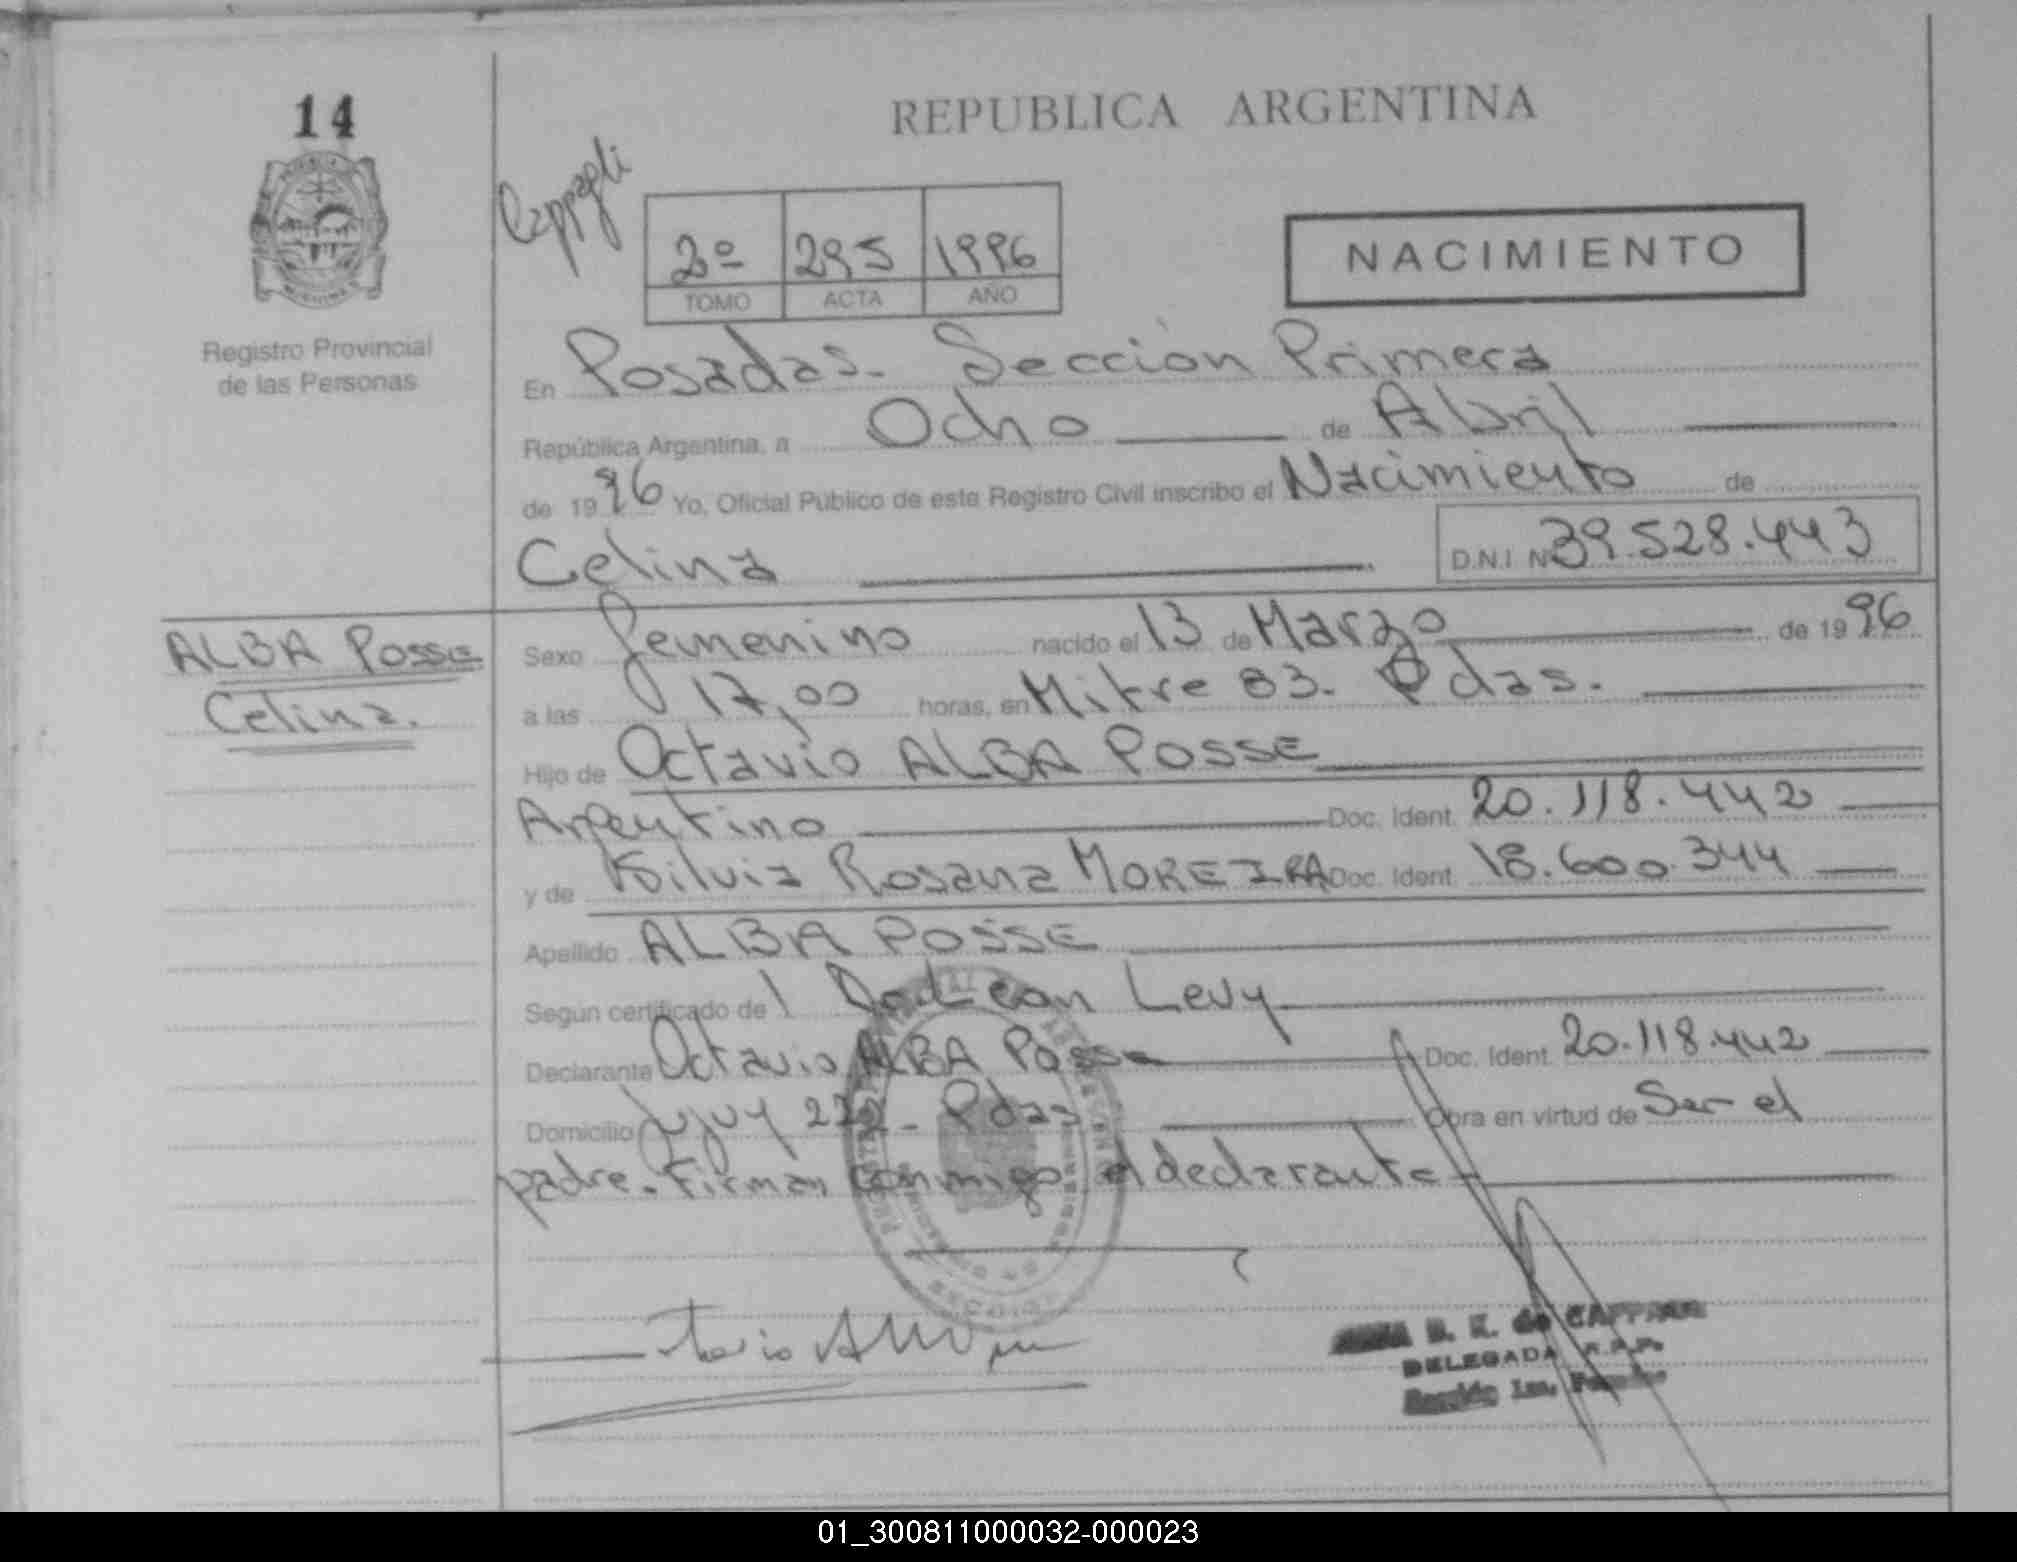 14
REPUBLICA ARGENTINA
Cappagli
2º 295 1996
TOMO ACTA AÑO
NACIMIENTO
Registro Provincial
de las Personas
En Posadas. Sección Primera
República Argentina, a Ocho de Abril
de 1996 Yo, Oficial Público de este Registro Civil inscribo el Nacimiento de
Celina D.N.I. Nº 39.528.443
ALBA POSSE
Celina.
Sexo femenino nacido el 13 de Marzo de 1996
a las 17,00 horas, en Mitre 83. Pdas.
Hijo de Octavio ALBA POSSE
Argentino Doc. Ident. 20.118.442
y de Silvia Rosana MOREIRA Doc. Ident. 18.600.344
Apellido ALBA POSSE
Según certificado de Leon Levy
Declarante Octavio ALBA Posse Doc. Ident. 20.118.442
Domicilio Jujuy 222 - Pdas Obra en virtud de Ser el
padre. Firman conmigo el declarante
DELEGADA R.P.P.
01_300811000032-000023